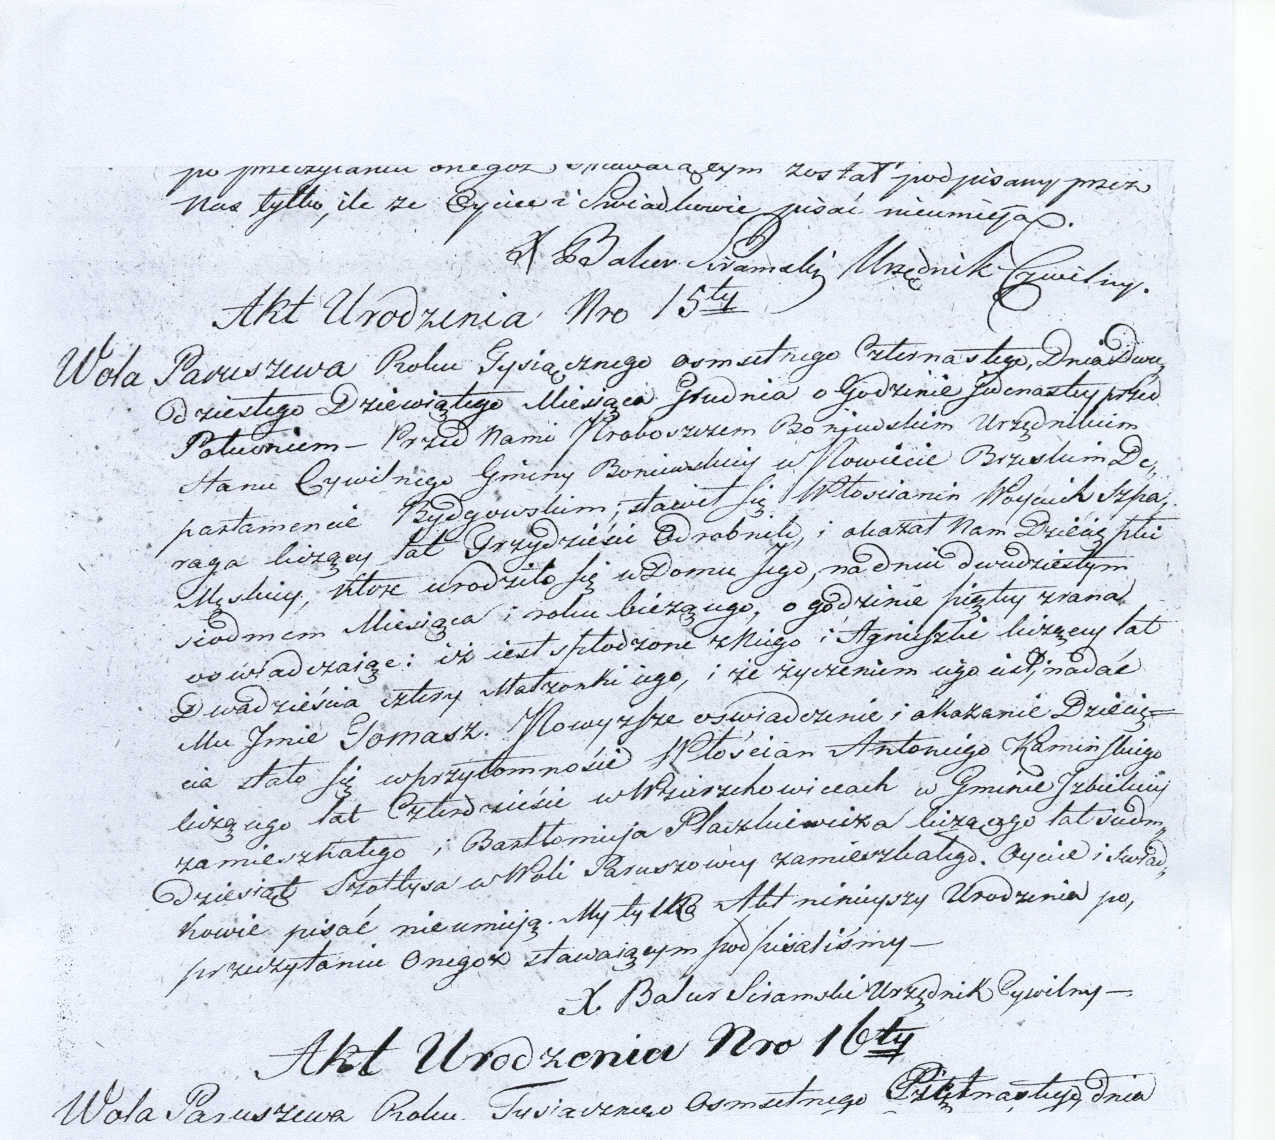 po przeczytaniu onegoż stawaiącym został podpisany przez
Nas tylko, ile ze Oyciec i Swiadkowie pisać nieumieją.
X Balcer Siramski Urzędnik Cywilny.
Akt Urodzenia Nro 15ty
Wola Paruszewa Roku Tysiącznego osmsetnego Czternastego, Dnia Dwu,
dziestego Dziewiątego Miesiąca Grudnia o Godzinie Jedenastey przed
Południem – Przed Nami Proboszczem Boniewskim Urzędnikiem
Stanu Cywilnego Gminy Boniewskiey w Powiecie Brzeskim De,
partamencie Bydgowskim, stawił się Włoscianin Woyciech Szpa,
raga liczący lat Trzydzieści Odrobnik, i okazał Nam Dziecię płci
Męskiey, które urodziło się w Domu Jego, na dniu dwudziestym
siodmem Miesiąca i roku bieżącego, o godzinie piątey zrana,
oswiadczaiąc: iż iest spłodzone z Niego i Agnieszki liczącey lat
Dwadzieścia cztery Małżonki iego, i że życzeniem iego iest, nadać
Mu Jmie Tomasz. Powyższe oświadczenie i okazanie Dziecię,
cia stało się w przytomności Włościan Antoniego Kamińskiego
liczącego lat Czterdzieście w Wierzchowiceach w Gminie Jzbickiey
zamieszkałego, i Bartłomieja Płaczkiewicza liczącego lat siedm,
dziesiąt Szołtysa w Woli Paruszowey zamieszkałego. Oyciec i swiad,
kowie pisać nieumieją. My tylko Akt ninieyszy Urodzenia po,
przeczytaniu Onegoż stawaiącym podpisaliśmy –
X. Balcer Siramski Urzędnik Cywilny –
Akt Urodzenia Nro 16ty
Wola Paruszewa Roku Tysiącznego Osmsetnego Piętnastego, dnia